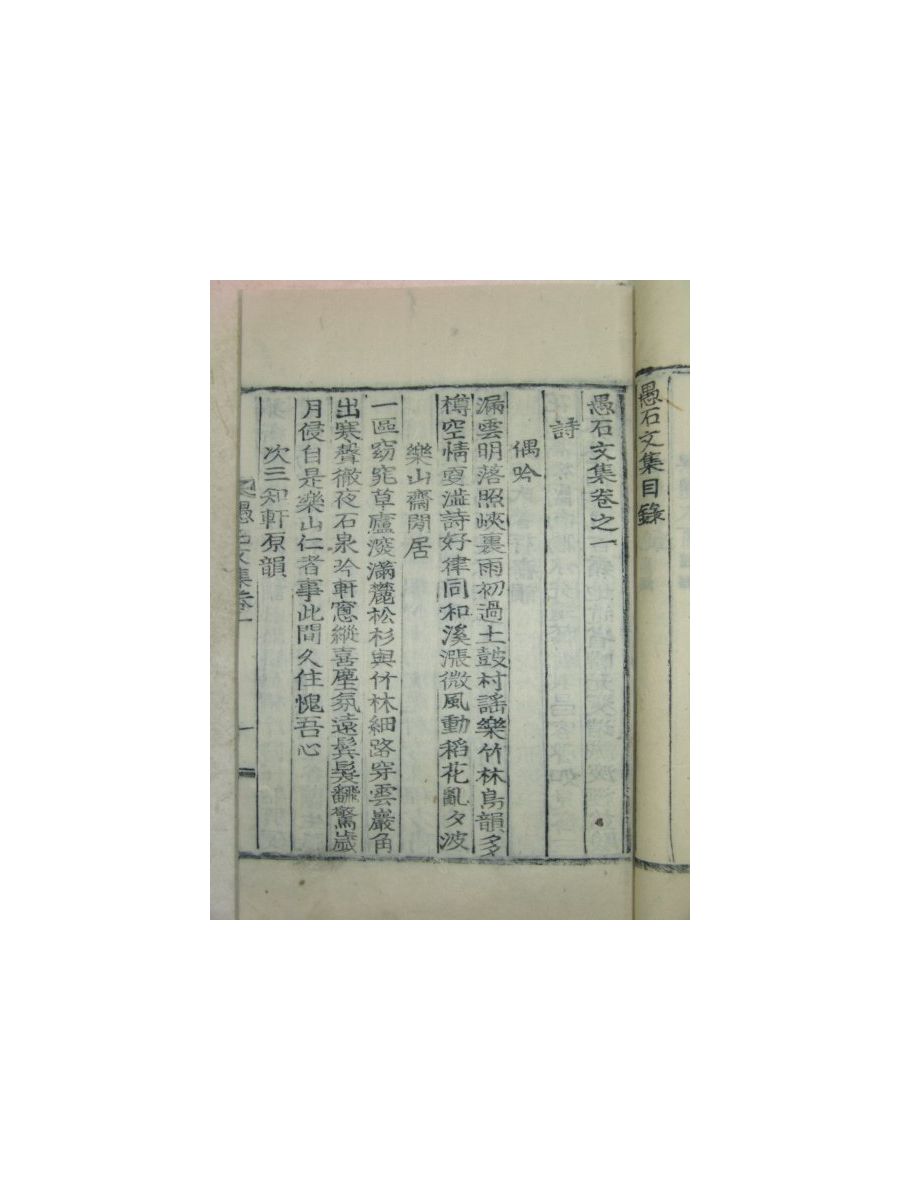 愚石文集目錄
愚石文集卷之一
詩
偶吟
漏雲明落照峽裏雨初過土鼓村謠樂竹林鳥韻多
樽空情更溢詩好律同和溪漲微風動稻花亂夕波
樂山齋閒居
一區窈窕草廬深滿麓松杉與竹林細路穿雲巖角
出寒聲徹夜石泉吟軒窓縱喜塵氛遠鬂髮飜驚歲
月侵自是樂山仁者事此間久住愧吾心
次三知軒原韻
愚石文集卷一
一